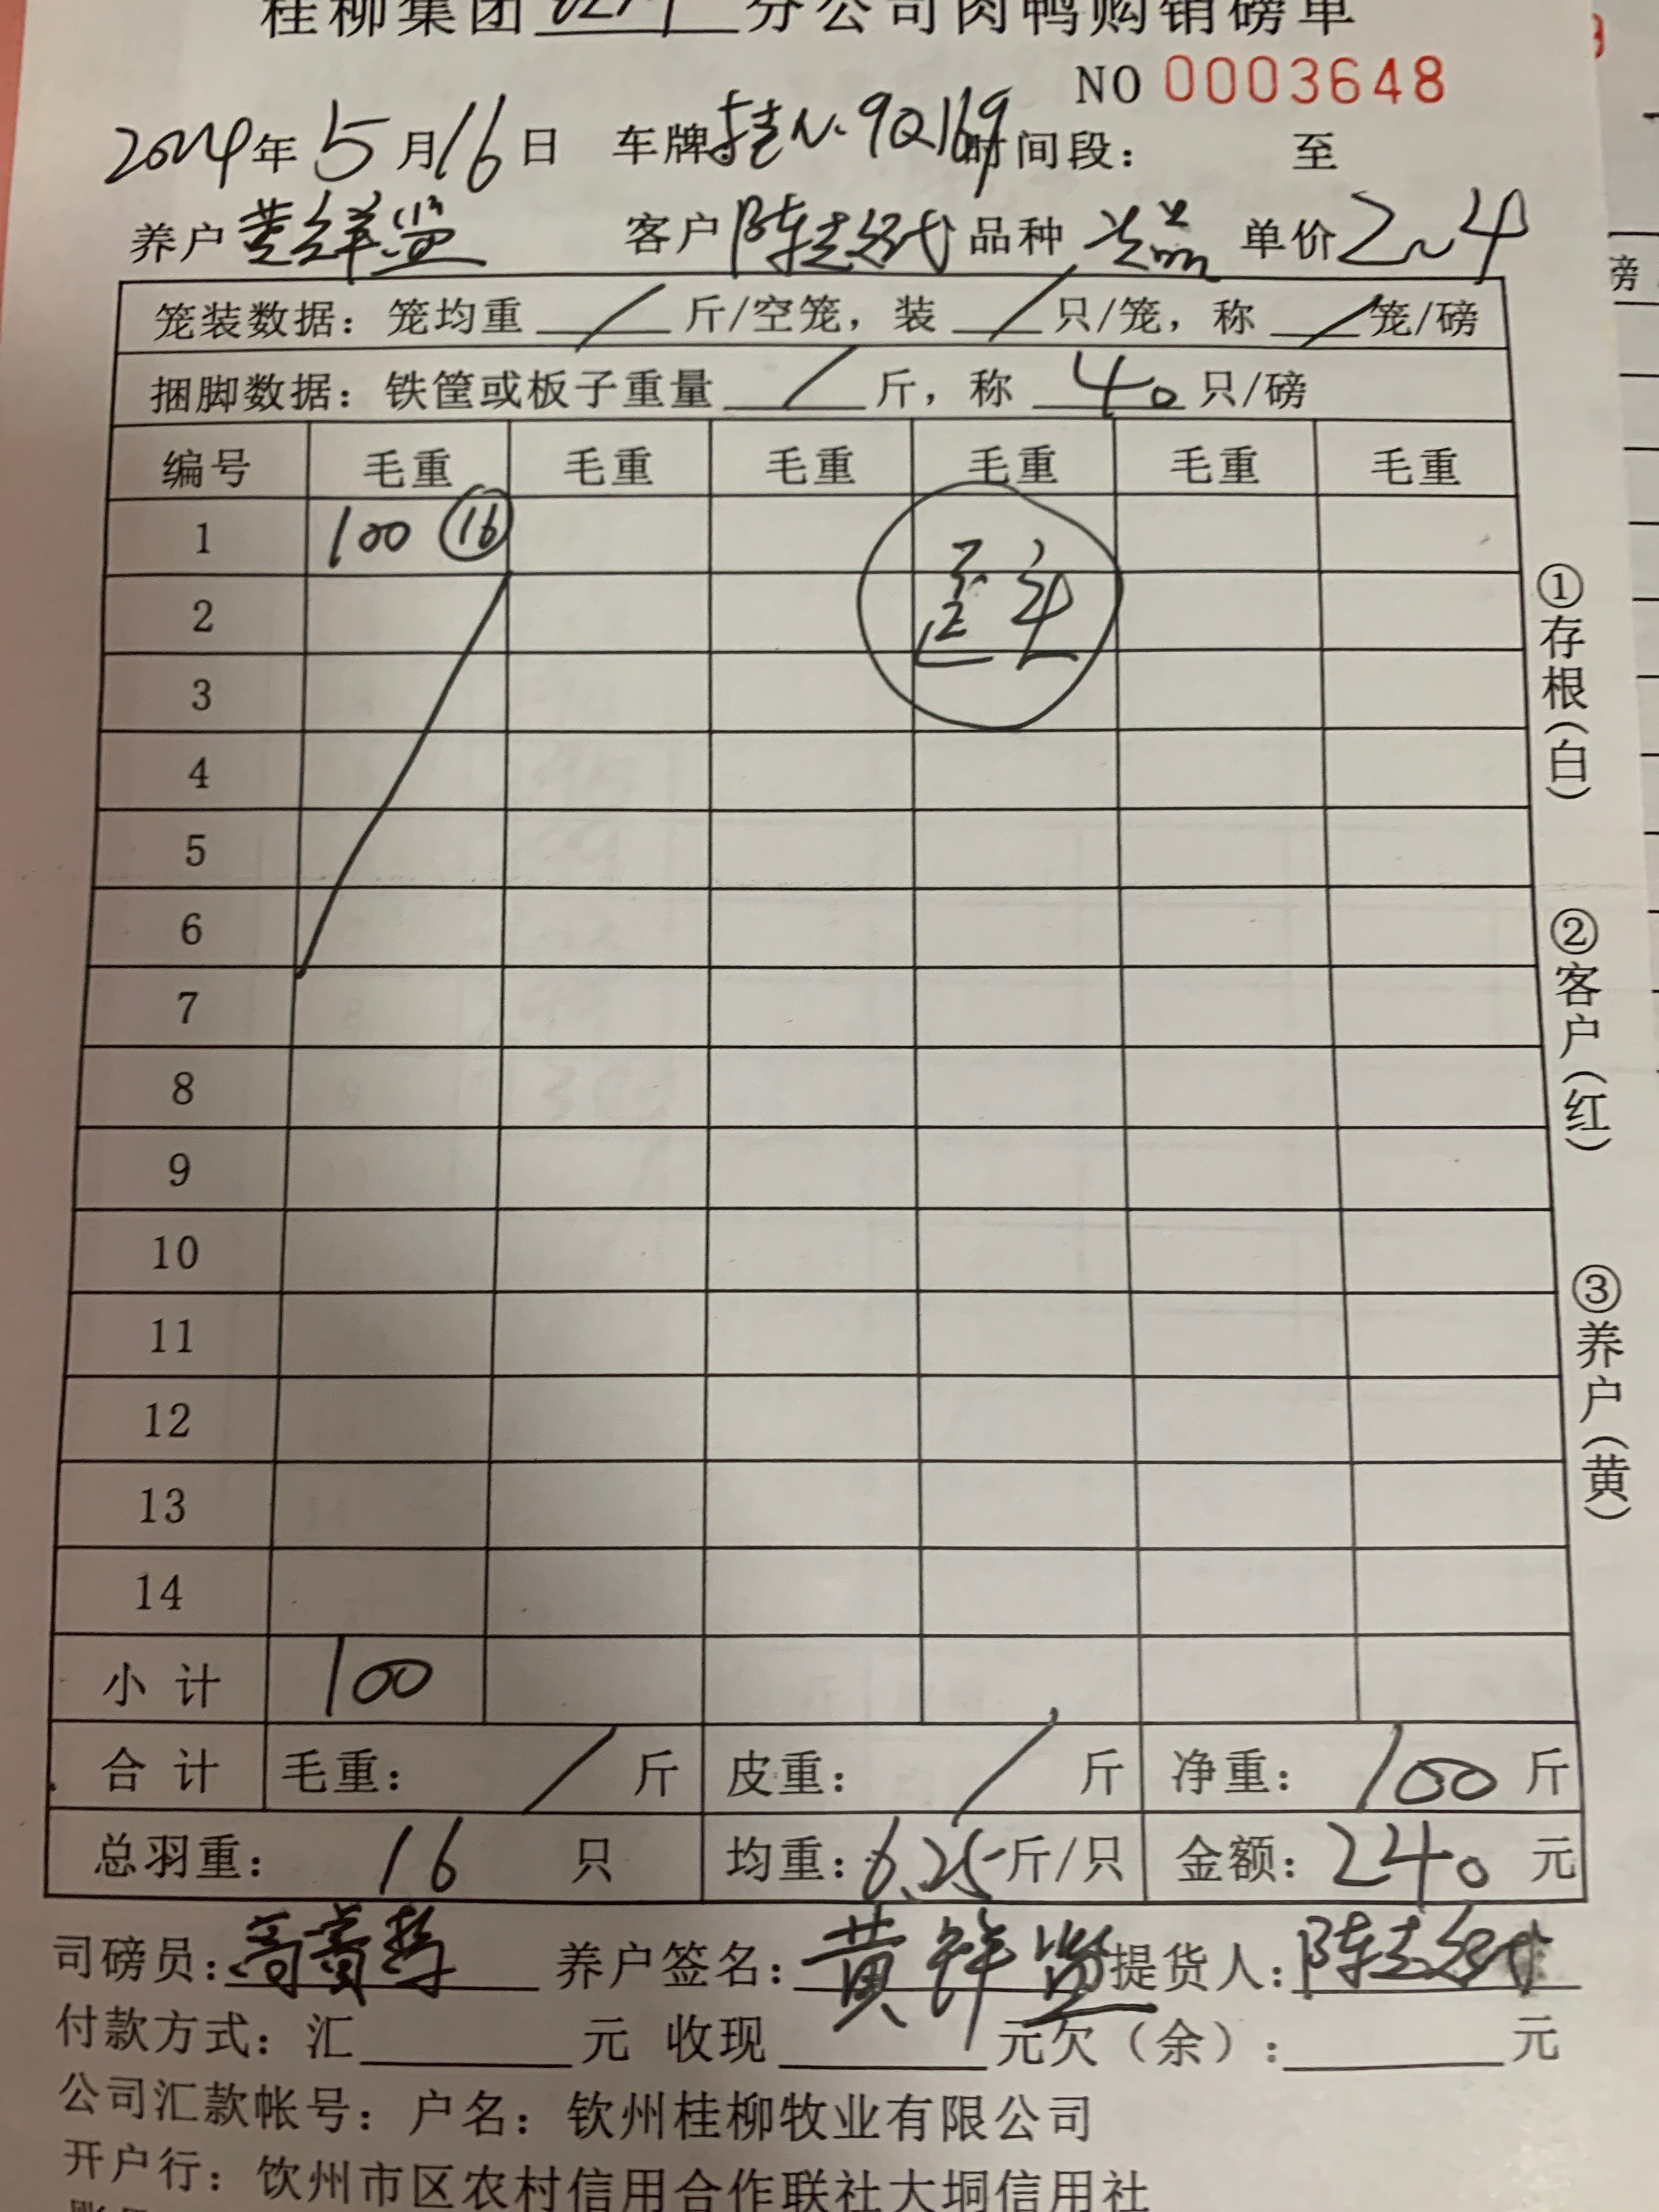 桂柳集团 分公司肉鸭购销磅单
NO 0003648
2024年5月16日 车牌:桂N·9Q169 时间段: 至
养户 黄祥 客户 陈志 品种 单价 2.4
笼装数据: 笼均重 / 斤/空笼, 装 / 只/笼, 称 / 笼/磅
捆脚数据: 铁筐或板子重量 / 斤, 称 40 只/磅
编号 毛重 毛重 毛重 毛重 毛重 毛重
1 100 16
2
3
4
5
6
7
8
9
10
11
12
13
14
小计 100
合计 毛重: / 斤 皮重: / 斤 净重: 100 斤
总羽重: 16 只 均重: 6.25 斤/只 金额: 240 元
司磅员: 养户签名: 黄 提货人: 陈志
付款方式: 汇 元 收现 元欠(余): 元
公司汇款帐号: 户名: 钦州桂柳牧业有限公司
开户行: 钦州市区农村信用合作联社大垌信用社
①存根(白)
②客户(红)
③养户(黄)
磅